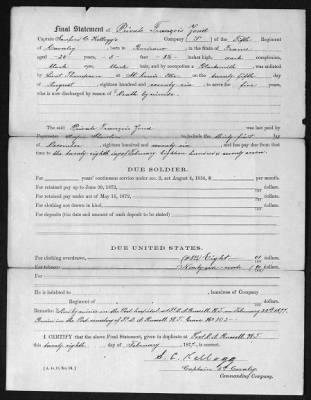 Final Statement of Private François Jond
Captain Sanford C. Kellogg's Company "H" of the Fifth Regiment
of Cavalry born in in the State of France
aged 24 years, 5 feet inches high, dark complexion,
black eyes, black hair, and by occupation a Blacksmith was enlisted
by Lieut Thompson at St. Louis Mo. on the twenty fifth day of
August eighteen hundred and seventy six, to serve five years,
and is now discharged by reason of Death by suicide.
The said Private François Jond was last paid by
Paymaster Major to include the thirty first day of
December eighteen hundred and seventy six and has pay due from that
time to the twenty eighth day of February Eighteen hundred & seventy seven.
DUE SOLDIER.
For years' continuous service under sec. 2, act August 4, 1854, $ per month.
For retained pay up to June 30, 1872, dollars.
For retained pay under act of May 15, 1872, dollars.
For clothing not drawn in kind, dollars.
For deposits (the date and amount of each deposit to be stated) dollars.
DUE UNITED STATES.
For clothing overdrawn, Eight dollars.
For tobacco Ninety six cents dollars.
He is indebted to laundress of Company
Regiment of dollars.
Remarks: in the Post hospital at Ft. D. A. Russell W.T. on February 28th 1877.
in the Post cemetery of Ft. D. A. Russell W.T. Grave No.
I CERTIFY that the above Final Statement, given in duplicate at Fort D. A. Russell W.T.
this twenty eighth day of February 1877, is correct.
S. C. Kellogg
Captain 5th Cavalry
Commanding Company.